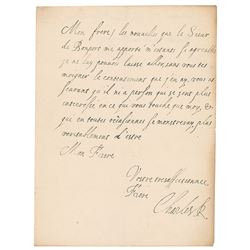 Mon frere, les nouvelles que le Sieur
de Bonpors me apporté m'estant si agreables
je ne l'ay pouvoir laisser aller, sans vous tes-
moigner le contentement que j'en ay, vous as-
seurant qu'il n'i a personne qui se soit plus
interessée en ce qui vous touche que moy, &
que en toutes occasions je monstreray, plus
veritablement d'estre
Mon Frere
Vostre tres affectionné
Frere
Charles R